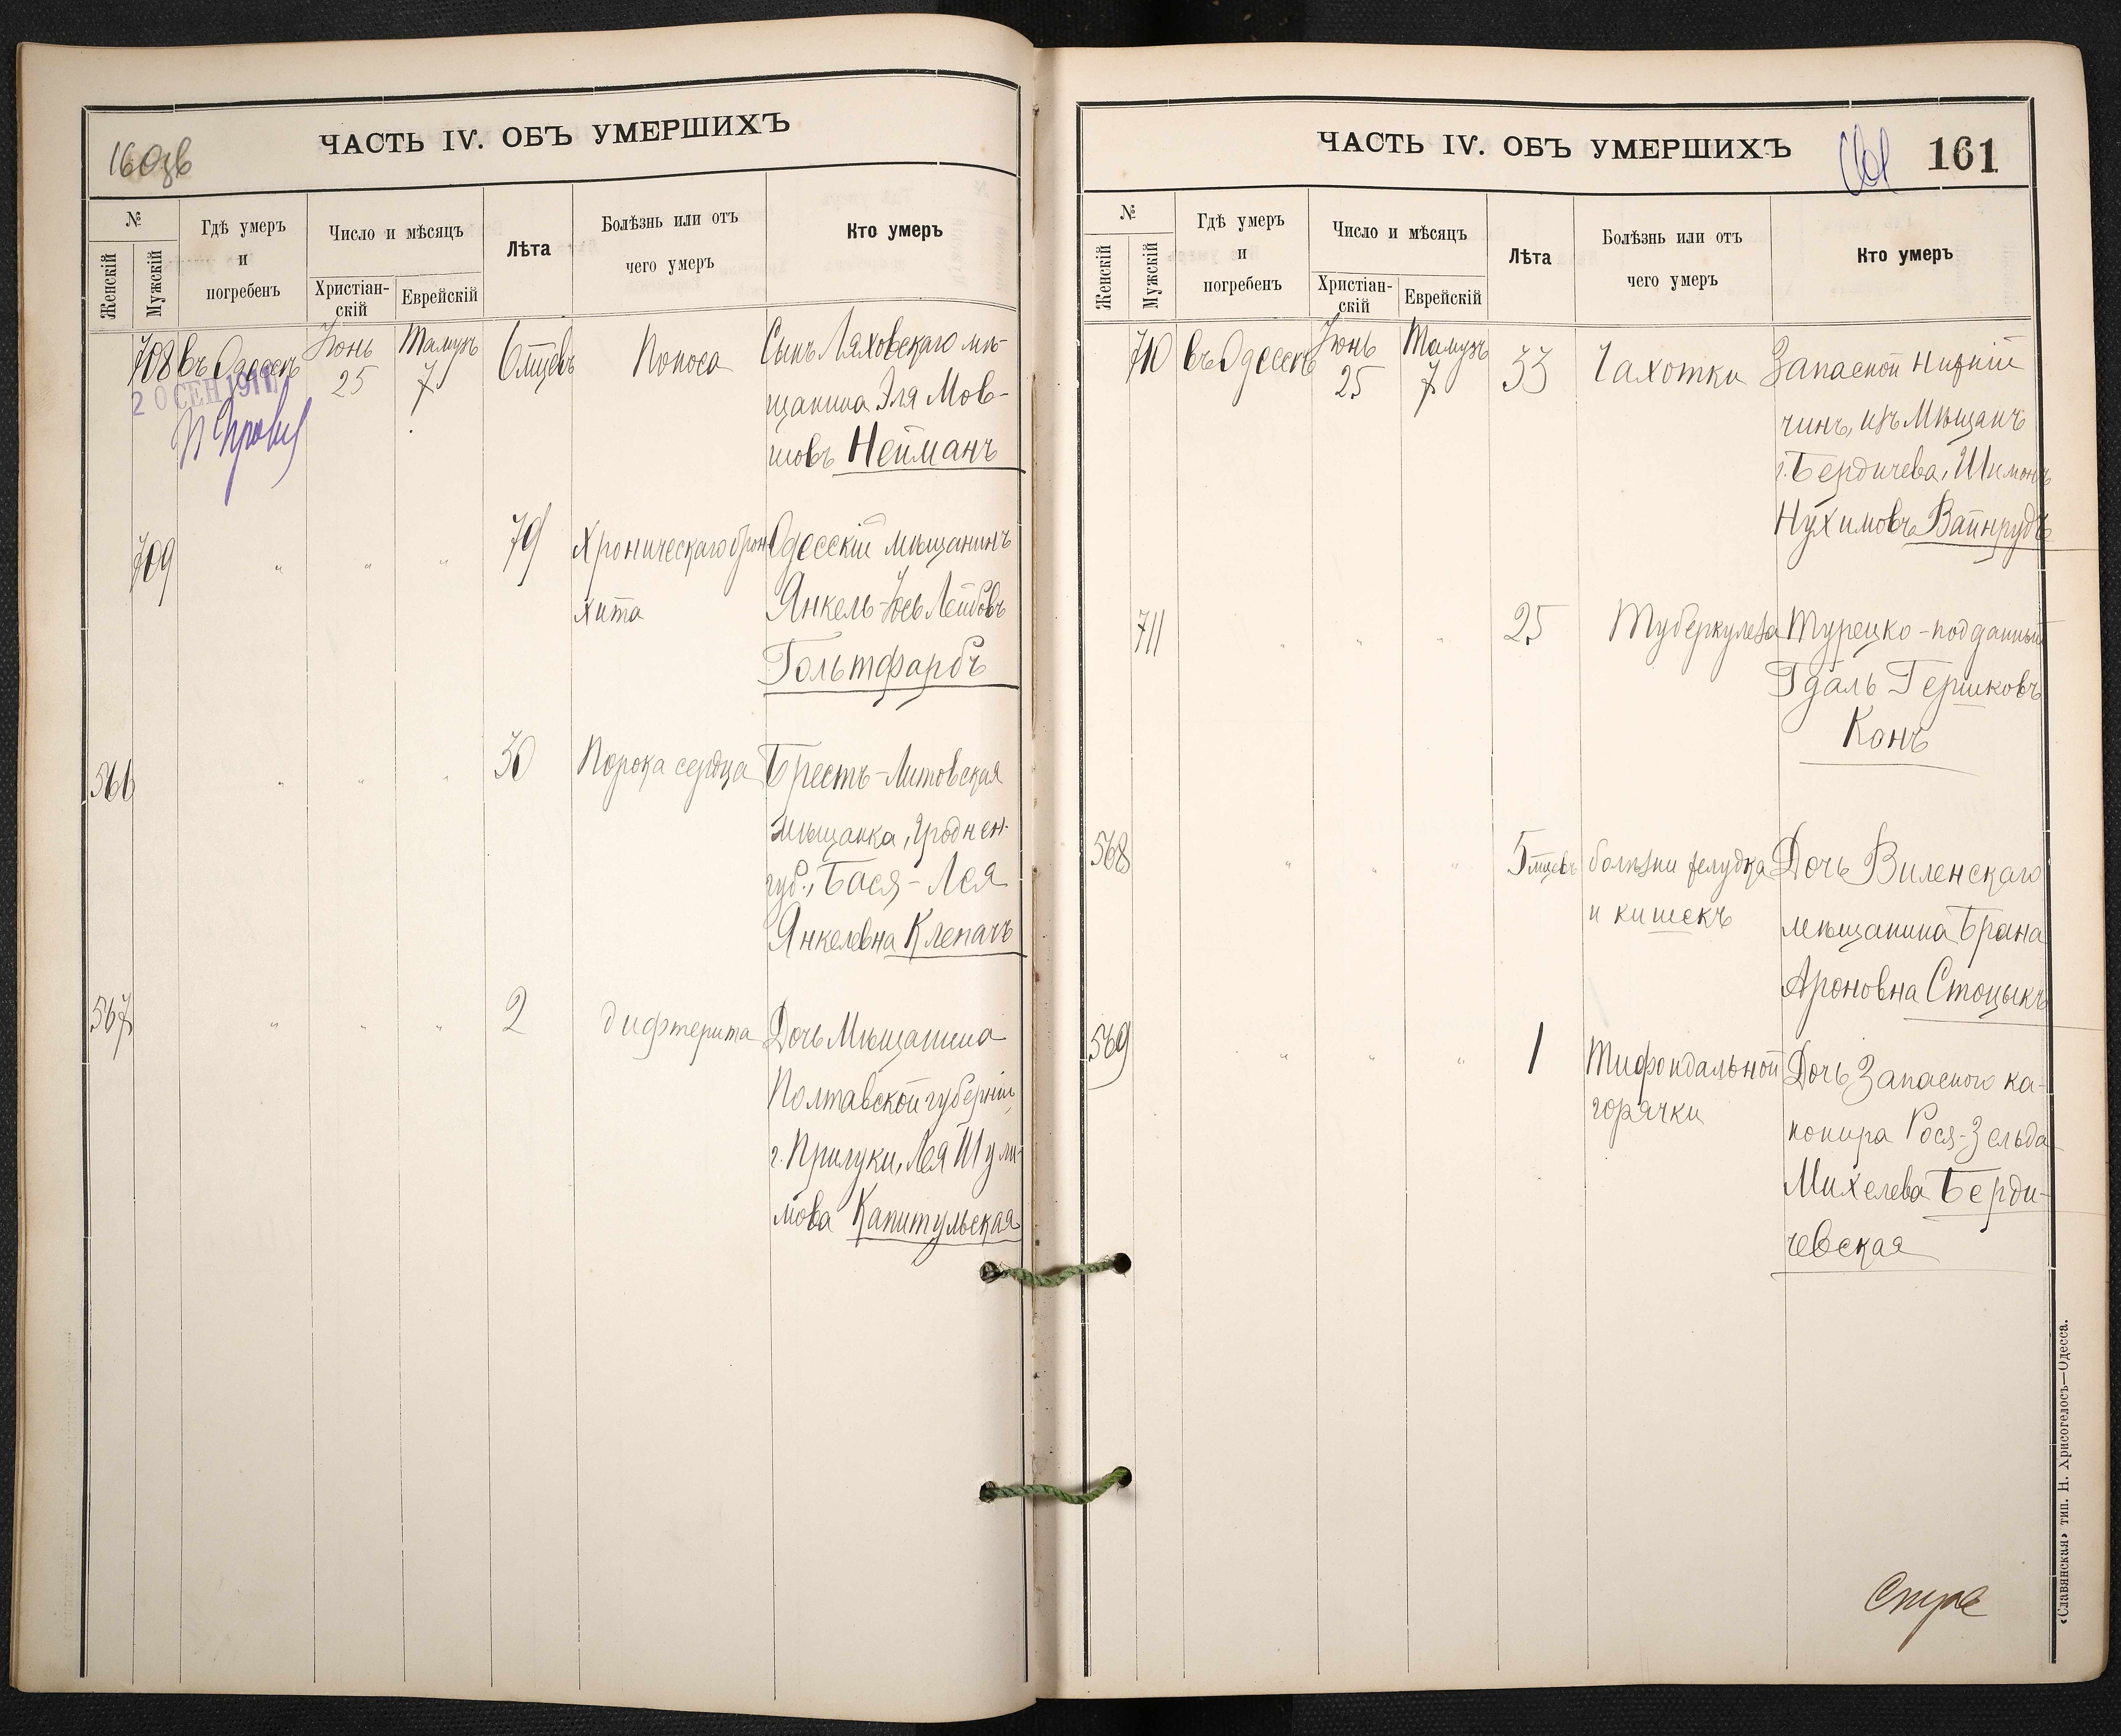 160зв
ЧАСТЬ IV. ОБЪ УМЕРШИХЪ
№
Женскій
Мужскій
Гдѣ умеръ
и
погребенъ
Число и мѣсяцъ
Христіан-
скій
Еврейскій
Лѣта
Болѣзнь или отъ
чего умеръ
Кто умеръ
708 въ Одессѣ Іюнь 25 Тамузъ 7 6 мцевъ Поноса Сынъ Ляховскаго мѣ-
щанина Эля Мов-
шовъ Нейманъ
20 СЕН 1911
709 " " " 79 Хроническаго брон Одесскій мѣщанинъ
хита Янкель-Іось Лейбовъ
Гольтфарбъ
566 " " " 30 Порока сердца Брестъ-Литовская
мѣщанка, Гроднен.
губ., Бася-Лея
Янкелевна Клепачъ
567 " " " 2 дифтерита Дочь Мѣщанина
Полтавской губерніи,
г. Прилуки, Лея Шули-
мова Капитульская
ЧАСТЬ IV. ОБЪ УМЕРШИХЪ
161
№
Женскій
Мужскій
Гдѣ умеръ
и
погребенъ
Число и мѣсяцъ
Христіан-
скій
Еврейскій
Лѣта
Болѣзнь или отъ
чего умеръ
Кто умеръ
710 въ Одессѣ Іюнь 25 Тамузъ 7 33 Чахотки Запасной нижній
чинъ, изъ Мѣщанъ
г. Бердичева, Шимонъ
Нухимовъ Вайнрудъ
711 " " " 25 Туберкулеза Турецко-подданный
Гдаль Гершковъ
Конъ
568 " " " 5 мцевъ болѣзни желудка Дочь Виленскаго
и кишекъ мѣщанина Брана
Ароновна Стоцыкъ
569 " " " 1 Тифоидальной Дочь Запасного ка-
горячки нонира Рося-Зельда
Михелева Берди-
чевская
«Славянская» тип. Н. Хрисогелосъ—Одесса.